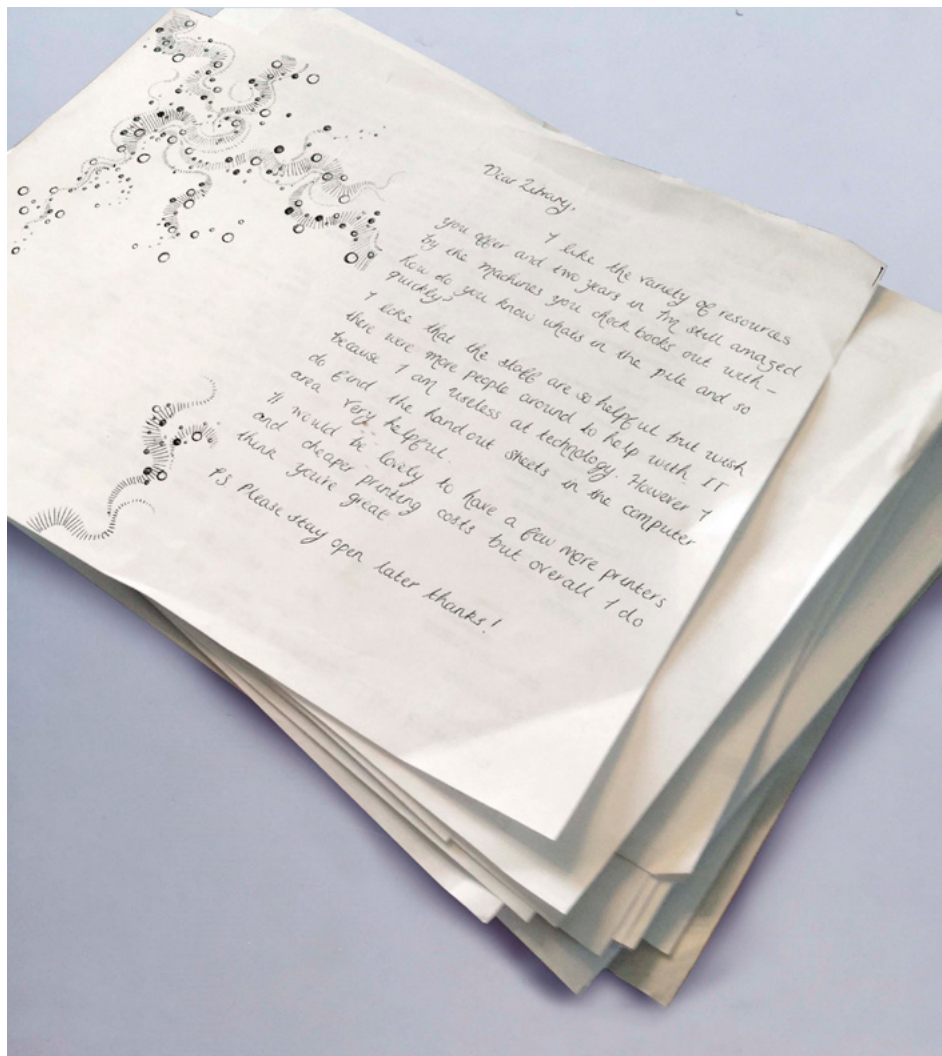 Dear Library,
I like the variety of resources
you offer and two years in I'm still amazed
by the machines you check books out with –
how do you know whats in the pile and so
quickly?
I like that the staff are so helpful but wish
there were more people around to help with IT
because I am useless at technology. However I
do find the handout sheets in the computer
area very helpful.
It would be lovely to have a few more printers
and cheaper printing costs but overall I do
think you're great
PS Please stay open later thanks!